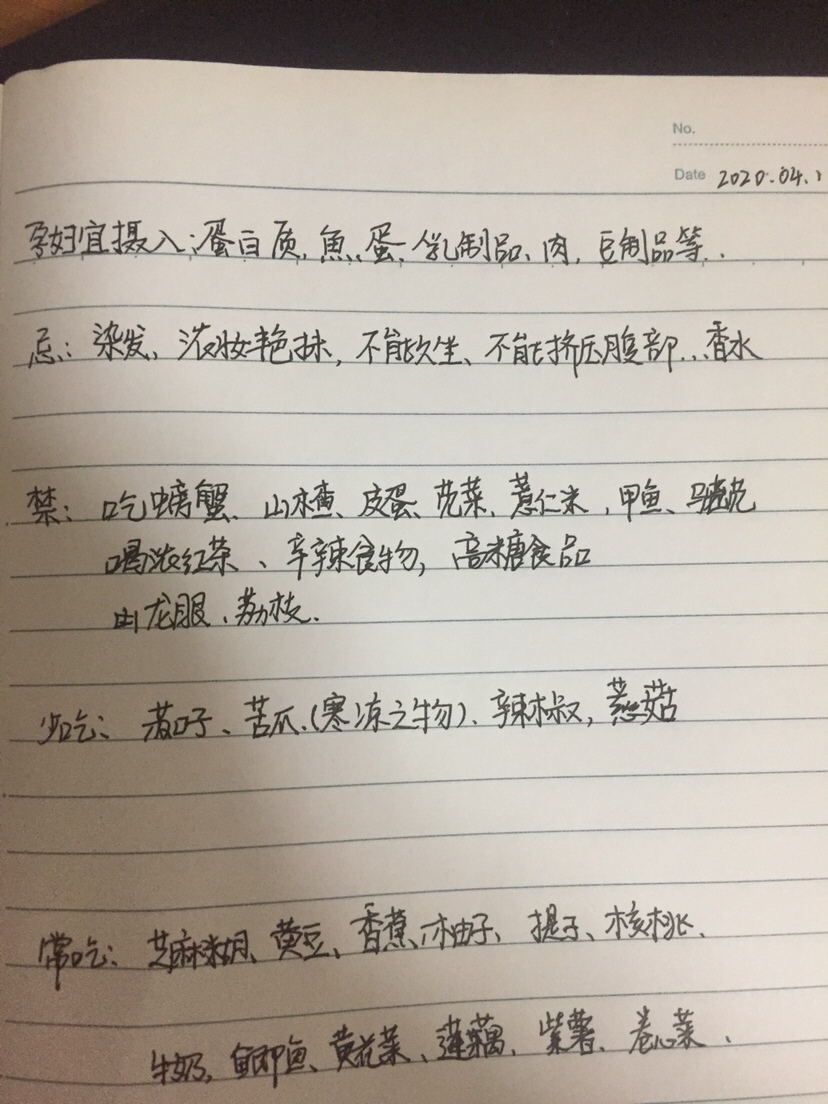 No.
Date 2020.04.1
孕妇宜摄入:蛋白质、鱼、蛋、乳制品、肉、豆制品等.
忌: 染发、浓妆艳抹, 不能久坐、不能挤压腹部、香水
禁: 吃螃蟹、山楂、皮蛋、苋菜、薏仁米, 甲鱼、马齿苋
喝浓红茶、辛辣食物, 高糖食品
龙眼、荔枝.
少吃: 茄子、苦瓜、(寒凉之物)、辣椒,
常吃: 芝麻糊、黄豆、香蕉、柚子、提子、核桃、
牛奶, 鲫鱼、黄花菜、莲藕, 紫薯、卷心菜、